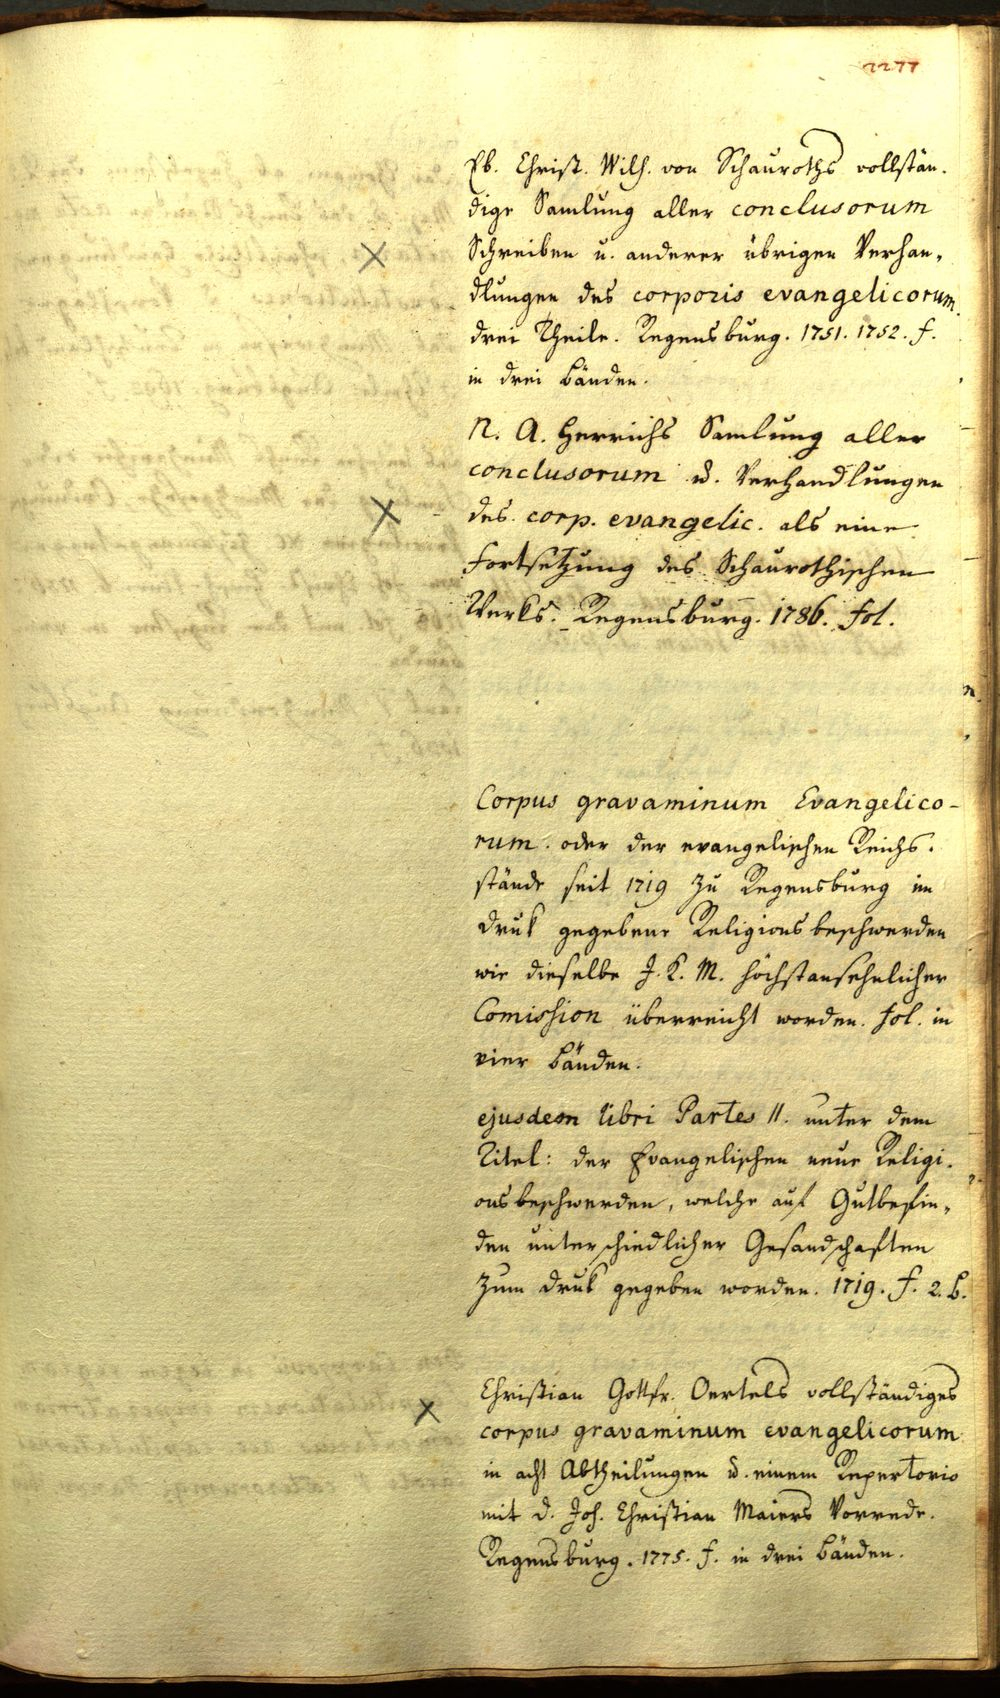 2277
Eb. Christ. Wilh. von Schauroths vollstän-
dige Samlung aller conclusorum
Schreiben u. anderer übrigen Verhan-
dlungen des corporis evangelicorum.
drei Theile. Regensburg. 1751. 1752. f.
in drei Bänden.
N. A. Herrichs Samlung aller
conclusorum u. Verhandlungen
des corp. evangelic. als eine
Fortsetzung des Schaurothischen
Werks. Regensburg. 1786. fol.
Corpus gravaminum Evangelico-
rum. oder der evangelischen Reichs-
stände seit 1719 zu Regensburg im
Druk gegebene Religionsbeschwerden
wie dieselbe J. K. M. höchstansehnlicher
Comission überreicht worden. fol. in
vier Bänden.
ejusdem libri Partes II. unter dem
Titel: der Evangelischen neue Religi-
onsbeschwerden, welche auf Gutbefin-
den unterschiedlicher Gesandschaften
zum Druk gegeben worden. 1719. f. 2. B.
Christian Gottfr. Oertels vollständiges
corpus gravaminum evangelicorum
in acht Abtheilungen u. einem Repertorio
mit d. Joh. Christian Maiers Vorrede.
Regensburg. 1775. f. in drei Bänden.